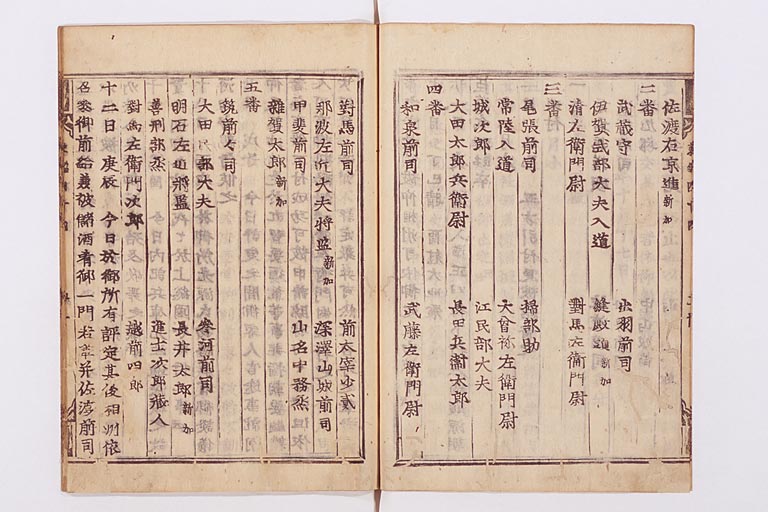 佐渡右京進 新加
二番
武藏守 出羽前司
伊賀式部大夫入道 新加
清左衛門尉 對馬左衛門尉
三番
尾張前司 掃部助
常陸入道 大曾祢左衛門尉
城次郎 江民部大夫
大田太郎兵衛尉 長田兵衛太郎
四番
和泉前司 武藤左衛門尉
對馬前司 前太宰少貳
那波左近大夫將監 新加 深澤山城前司
甲斐前司 山名中務丞
雜賀太郎 新加
五番
筑前々司 參河前司
大田民部大夫
明石左近將監 長井太郎 新加
善刑部丞 進士次郎藏人
對馬左衛門次郎 越前四郎
十二日 庚辰 今日於御所有評定其後相州依
召參御前給 儲酒肴御一門 并佐渡前司